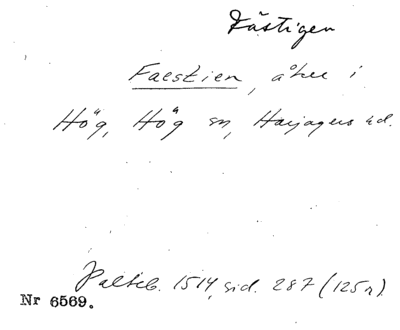 Fästigen
Faestien, åker i
Hög, Hög sn, Harjagers hd.
Palteb. 1514, sid. 287 (125 r).
Nr 6569.